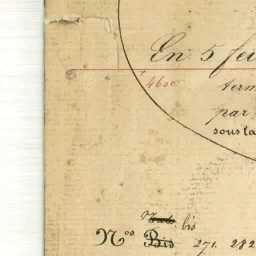 En 5 feu
4600
term
par
sous la
bis
Nos Bis 271. 282